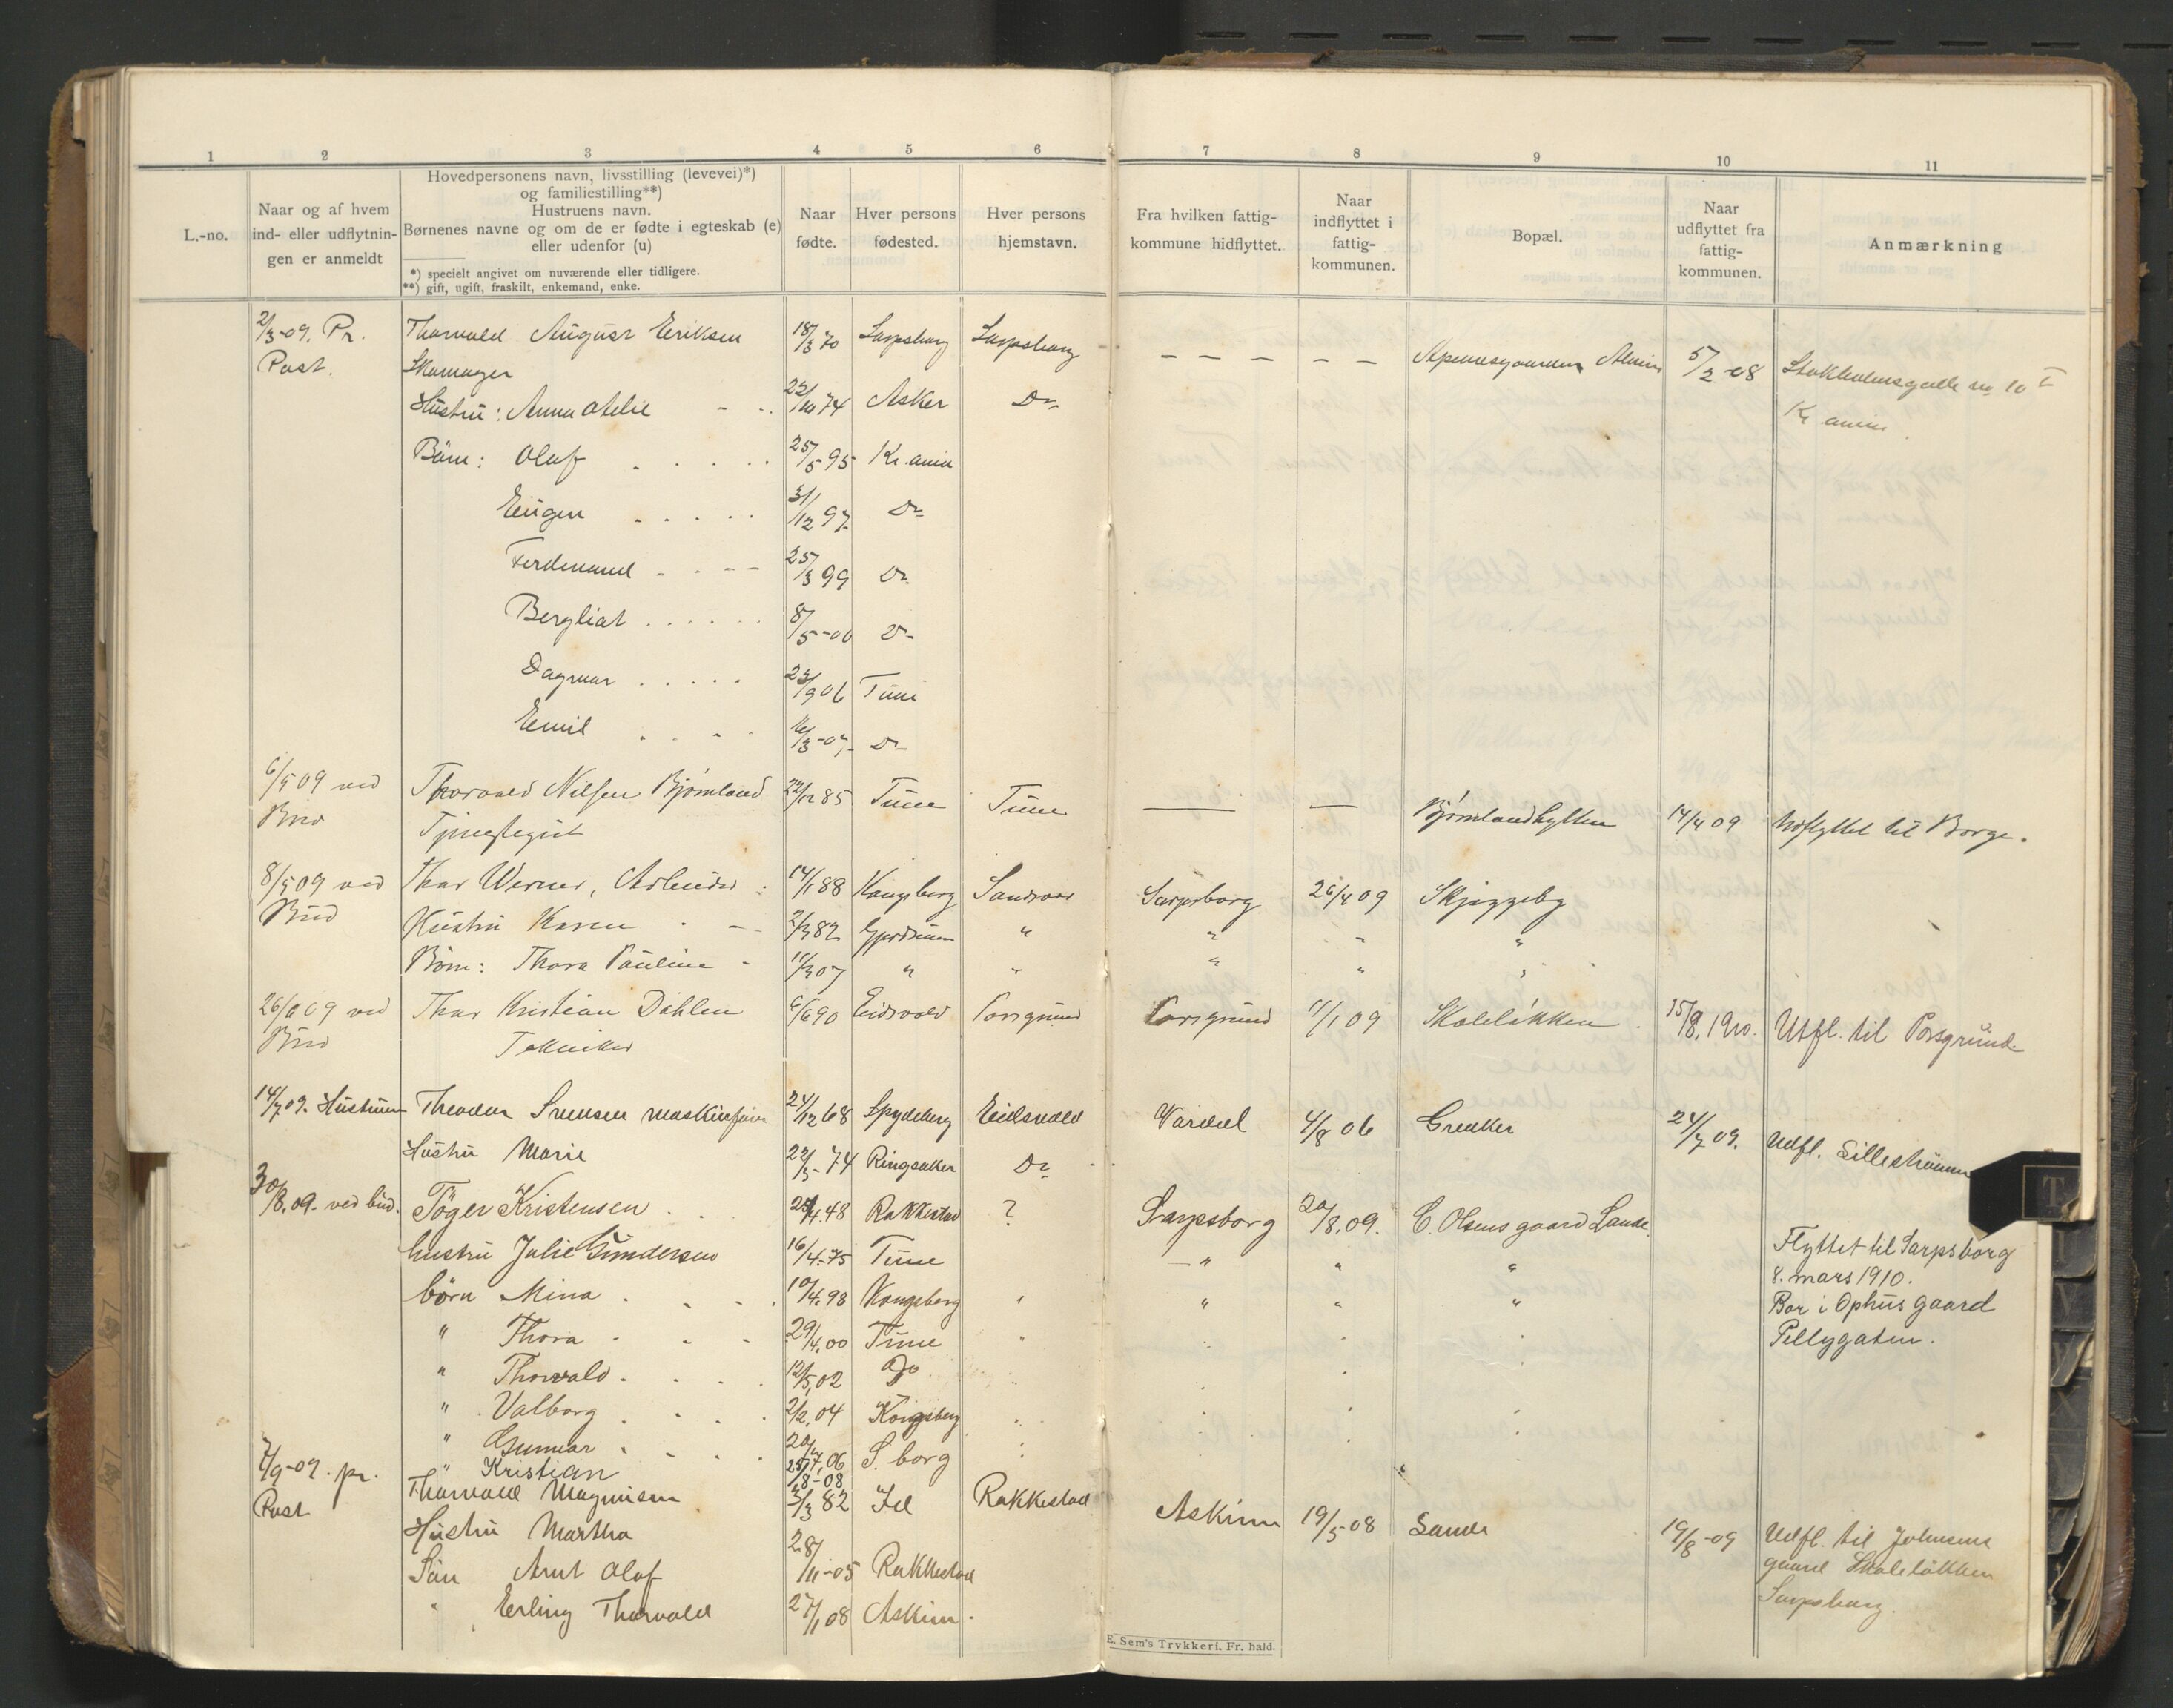 1 2 3 4 5 6 7 8 9 10 11
L.-no.
Naar og af hvem
ind- eller udflytnin-
gen er anmeldt
Hovedpersonens navn, livsstilling (levevei)*)
og familiestilling**)
Hustruens navn.
Børnenes navne og om de er fødte i egteskab (e)
eller udenfor (u)
*) specielt angivet om nuværende eller tidligere.
**) gift, ugift, fraskilt, enkemand, enke.
Naar
fødte.
Hver persons
fødested.
Hver persons
hjemstavn.
Fra hvilken fattig-
kommune hidflyttet.
Naar
indflyttet i
fattig-
kommunen.
Bopæl.
Naar
udflyttet fra
fattig-
kommunen.
Anmærkning
2/3-09. Pr. Thorvald August Eriksen 18/3 70 Sarpsborg Sarpsborg — — — — — — 5/2-08 Stokholmsgade no 10 I
Post. Skomager Kr.ania
Hustru: Anna Otelie 22/10 74 Asker Do
Börn: Olaf 25/5 95 Kr.ania
Eugen 31/12 97 Do
Ferdinand 25/3 99 Do
Bergliot 8/5-00 Do
Dagmar 23/9 06 Tune
Emil 16/3-07 Do
6/5 09 ved Thorvald Nilsen Bjørnland 22/12 85 Tune Tune — — Bjørnlandhytten 14/4 09 Udflyttet til Borge.
Bud Tjenestegut
8/5 09 ved Thor Werner, Arbeider 14/1 88 Kongsberg Sandsvær Sarpsborg 26/4 09 Skjeggeby
Bud Hustru Karen 2/3 82 Gjerdrum " " " "
Börn: Thora Pauline 11/3 07 " " " " "
26/6 09 ved Thor Kristian Dahlen 6/6 90 Eidsvold Porsgrund Porsgrund 11/1 09 Skoleløkken 15/8. 1910. Utfl. til Porsgrund.
Bud Tekniker
14/7 09. Hustruen Theodor Svensen 24/12 68 Spydeberg Eidsvold Vardal 4/8 06 Greaker 24/7 09. Udfl. Lillestrømmen
Hustru Marie 22/3-74 Ringsaker Do
30/8.09. ved bud. Töger Kristensen 4.48 Rakkestad ? Sarpsborg 20/8.09. C. Olsens gaard Lande.
hustru Julie Gundersen 16/4-75 Tune " " " Flyttet til Sarpsborg
börn Mina 10/4.98 Kongsberg " " " " 8. mars 1910.
" Thora 29/4.00 Tune " Bor i Ophus gaard
" Thorvald 12/5.02 Do Pellygaten.
" Valborg 2/2.04 Kongsberg
" Gunnar 20/7.06 S.borg
" Kristian 25/8-08
7/9-09. pr. Thorvald Magnusen 3/3 82 Id Rakkestad Askim 19/5-08 Lande 19/8-09 Udfl. til Johnsens
Post Hustru Martha gaard Skoleløkken
Sön Arnt Olaf 28/11-05 Rakkestad Sarpsborg.
" Erling Thorvald 27/1 08 Askim.
E. Sem's Trykkeri. Fr. hald.
T
V